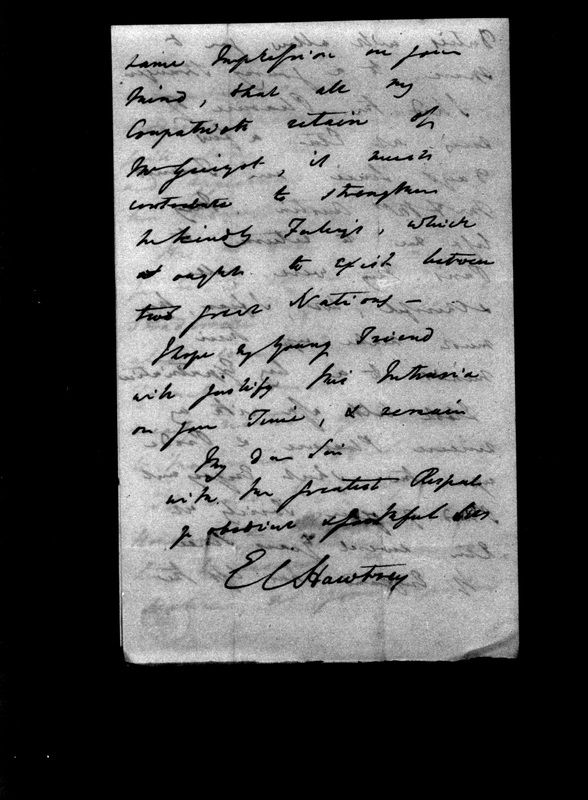 same Impression on your
Mind, that all my
Compatriots retain of
Mr Guizot, it must
contribute to strengthen
the kindly Feelings, which
ought to exist between
two great Nations —
I hope my Young Friend
will justify this Intrusion
on your Time, & remain
My Dear Sir
with the greatest Respect
yr obedient & faithful
E C Hawtrey